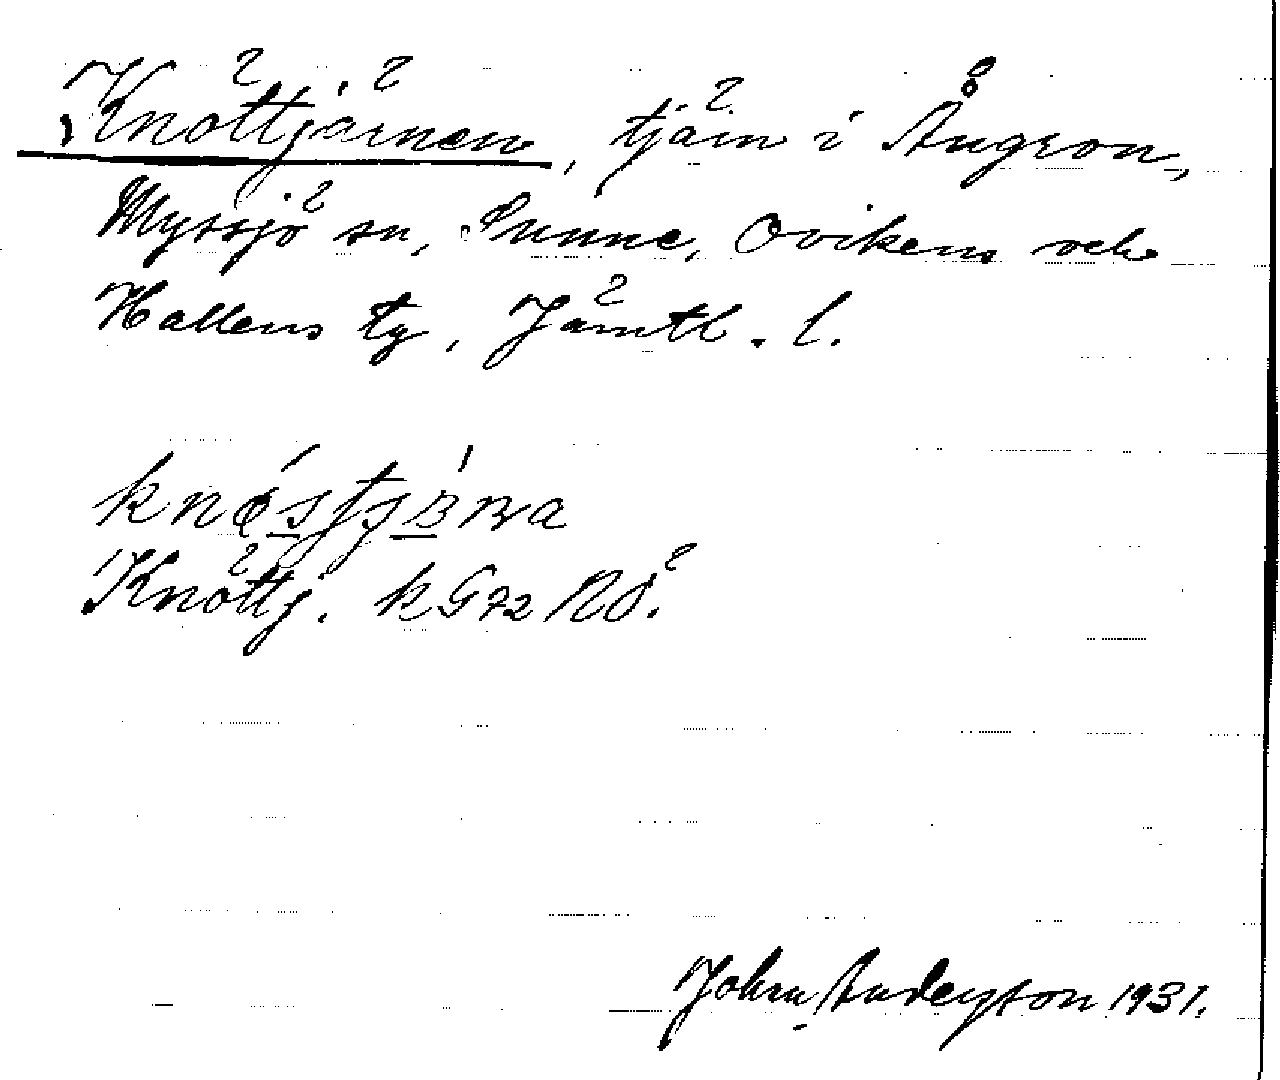 Knöttjärnen, tjärn i Ångron,
Myssjö sn, Sunne, Ovikens och
Hallens tg, Jämtl. l.
Knöttj. kG72 NÖ.
John Andersson 1931.